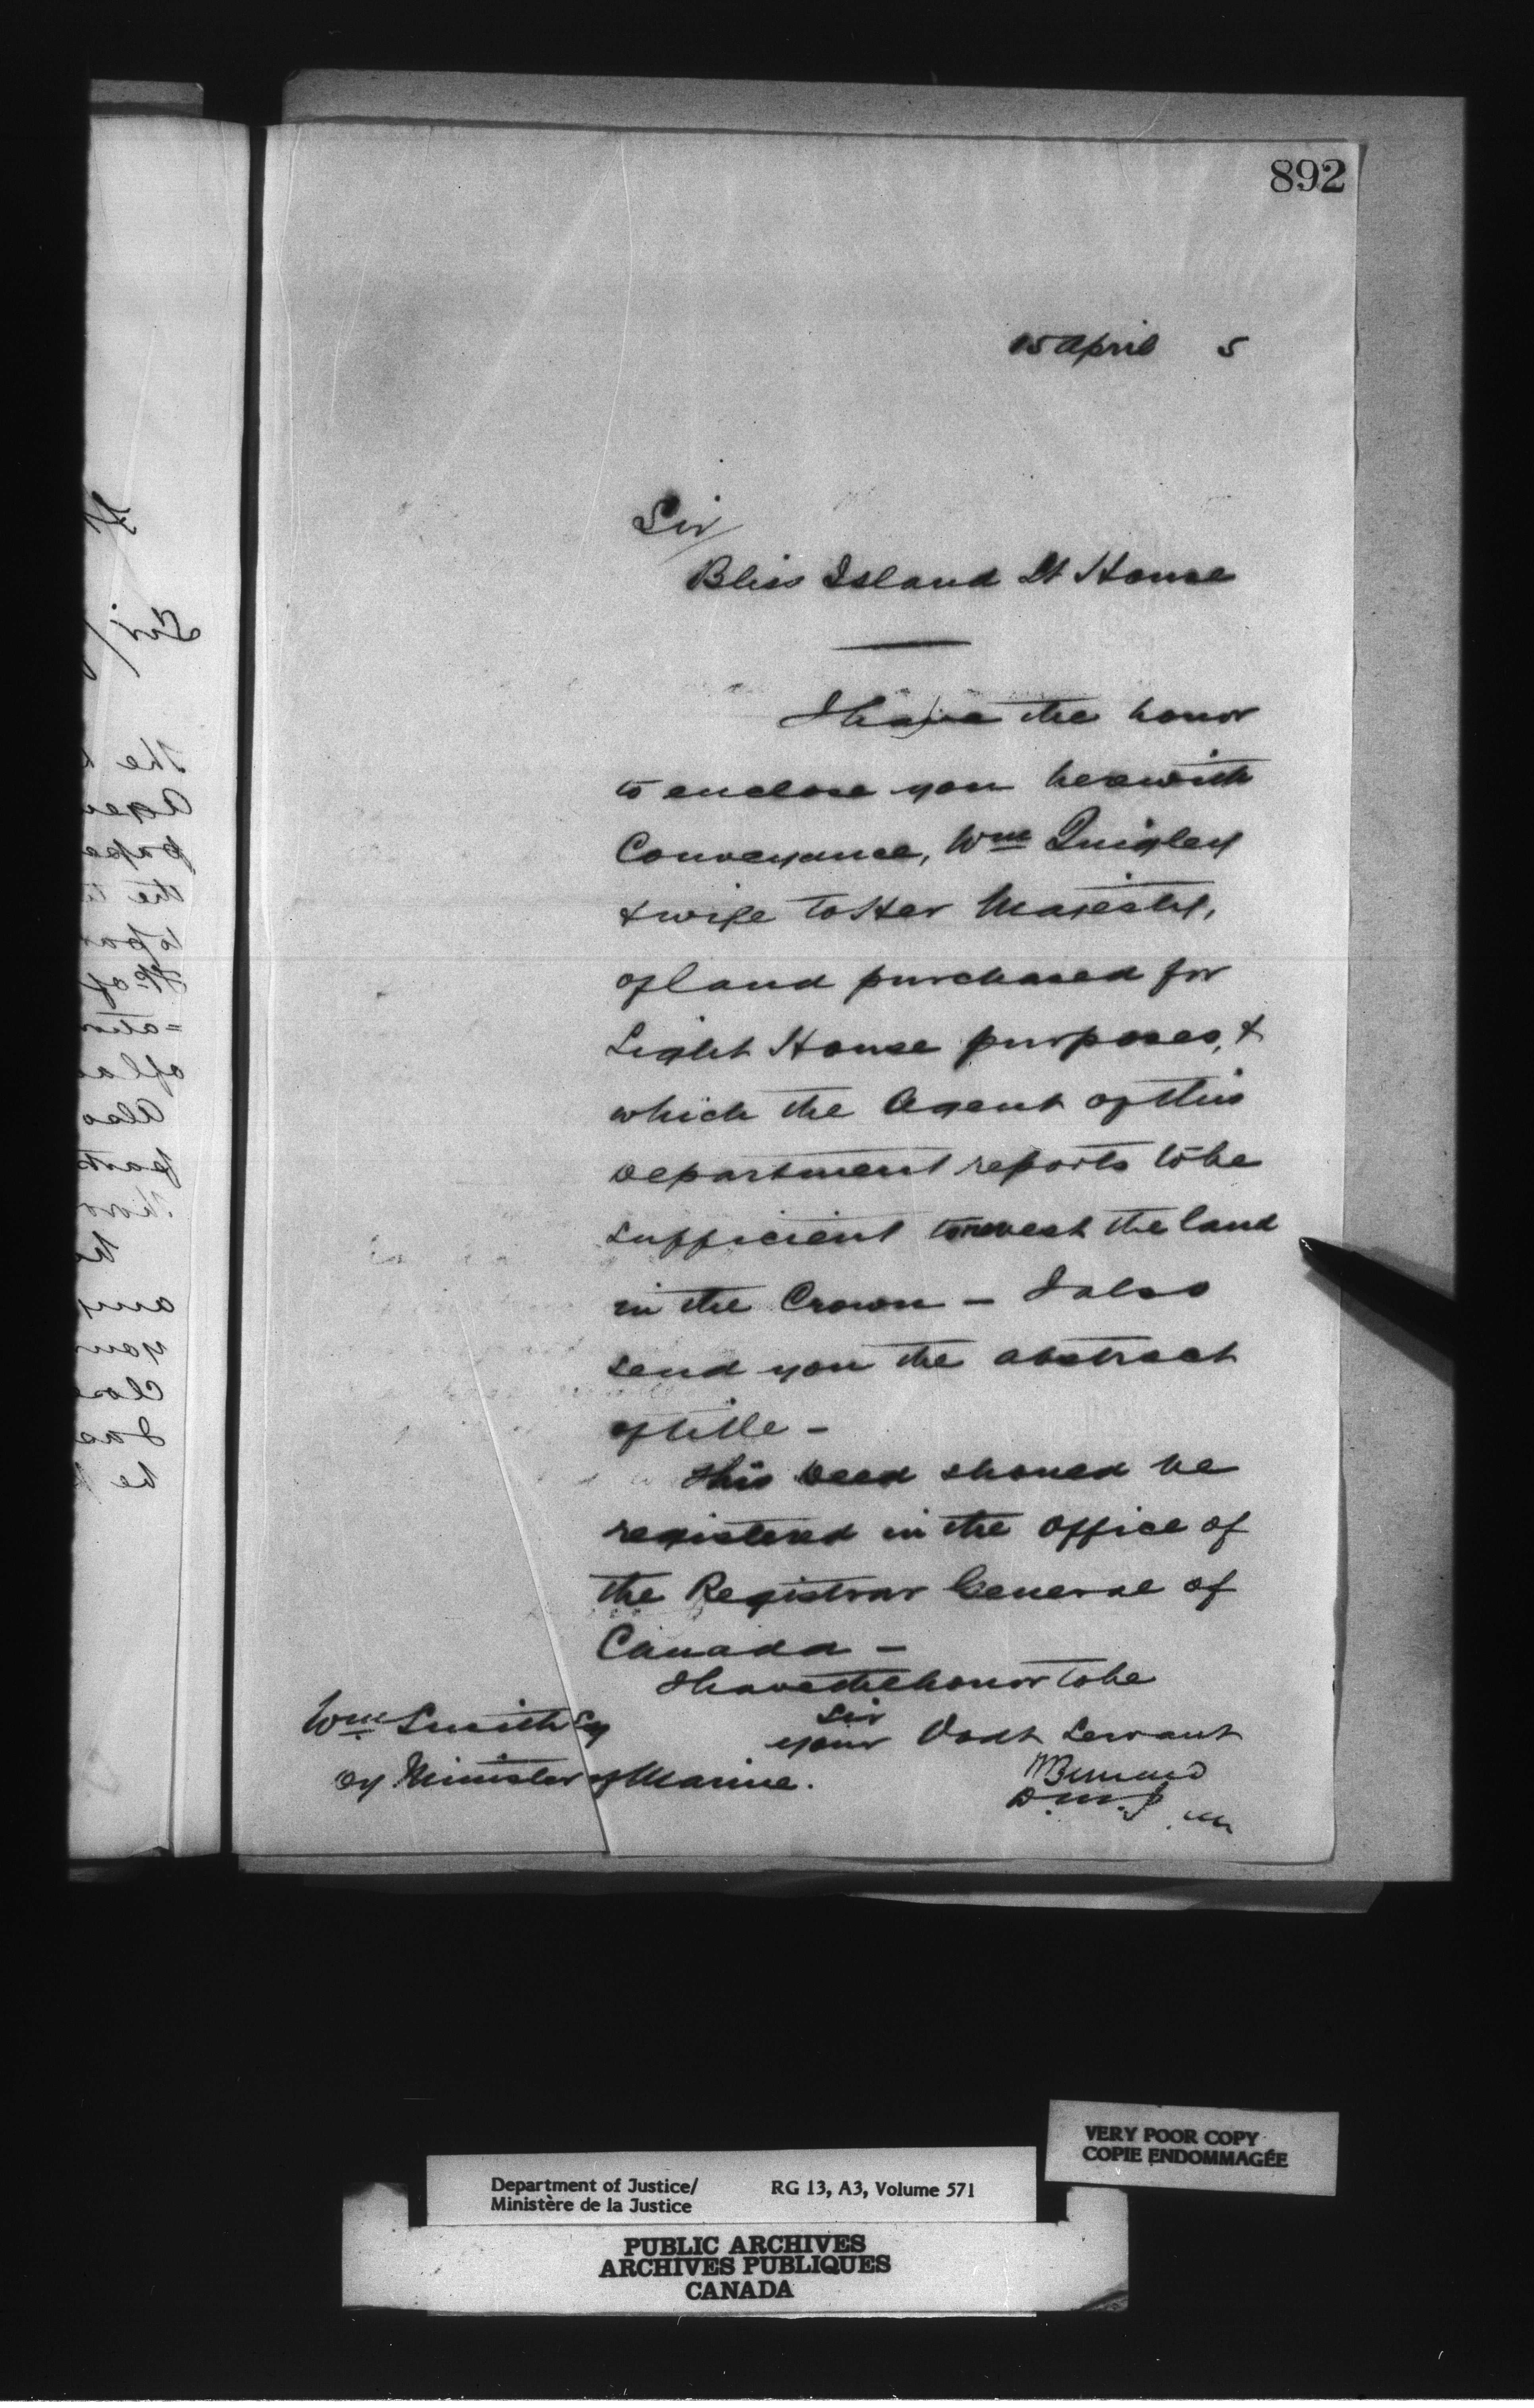 892
15 April 5
Sir
Bliss Island Lt House
I have the honor
to enclose you herewith
Conveyance, Wm Quigley
& wife to Her Majesty,
of land purchased for
Light House purposes, &
which the Agent of this
Department reports to be
sufficient to revest the land
in the Crown – I also
send you the abstract
of title –
This Deed should be
registered in the office of
the Registrar General of
Canada –
I have the honor to be
Sir
your Obdt Servant
Wm Smith Esq
Dy Minister of Marine.
H Bernard
D.M.J.
VERY POOR COPY
COPIE ENDOMMAGÉE
Department of Justice/ RG 13, A3, Volume 571
Ministère de la Justice
PUBLIC ARCHIVES
ARCHIVES PUBLIQUES
CANADA